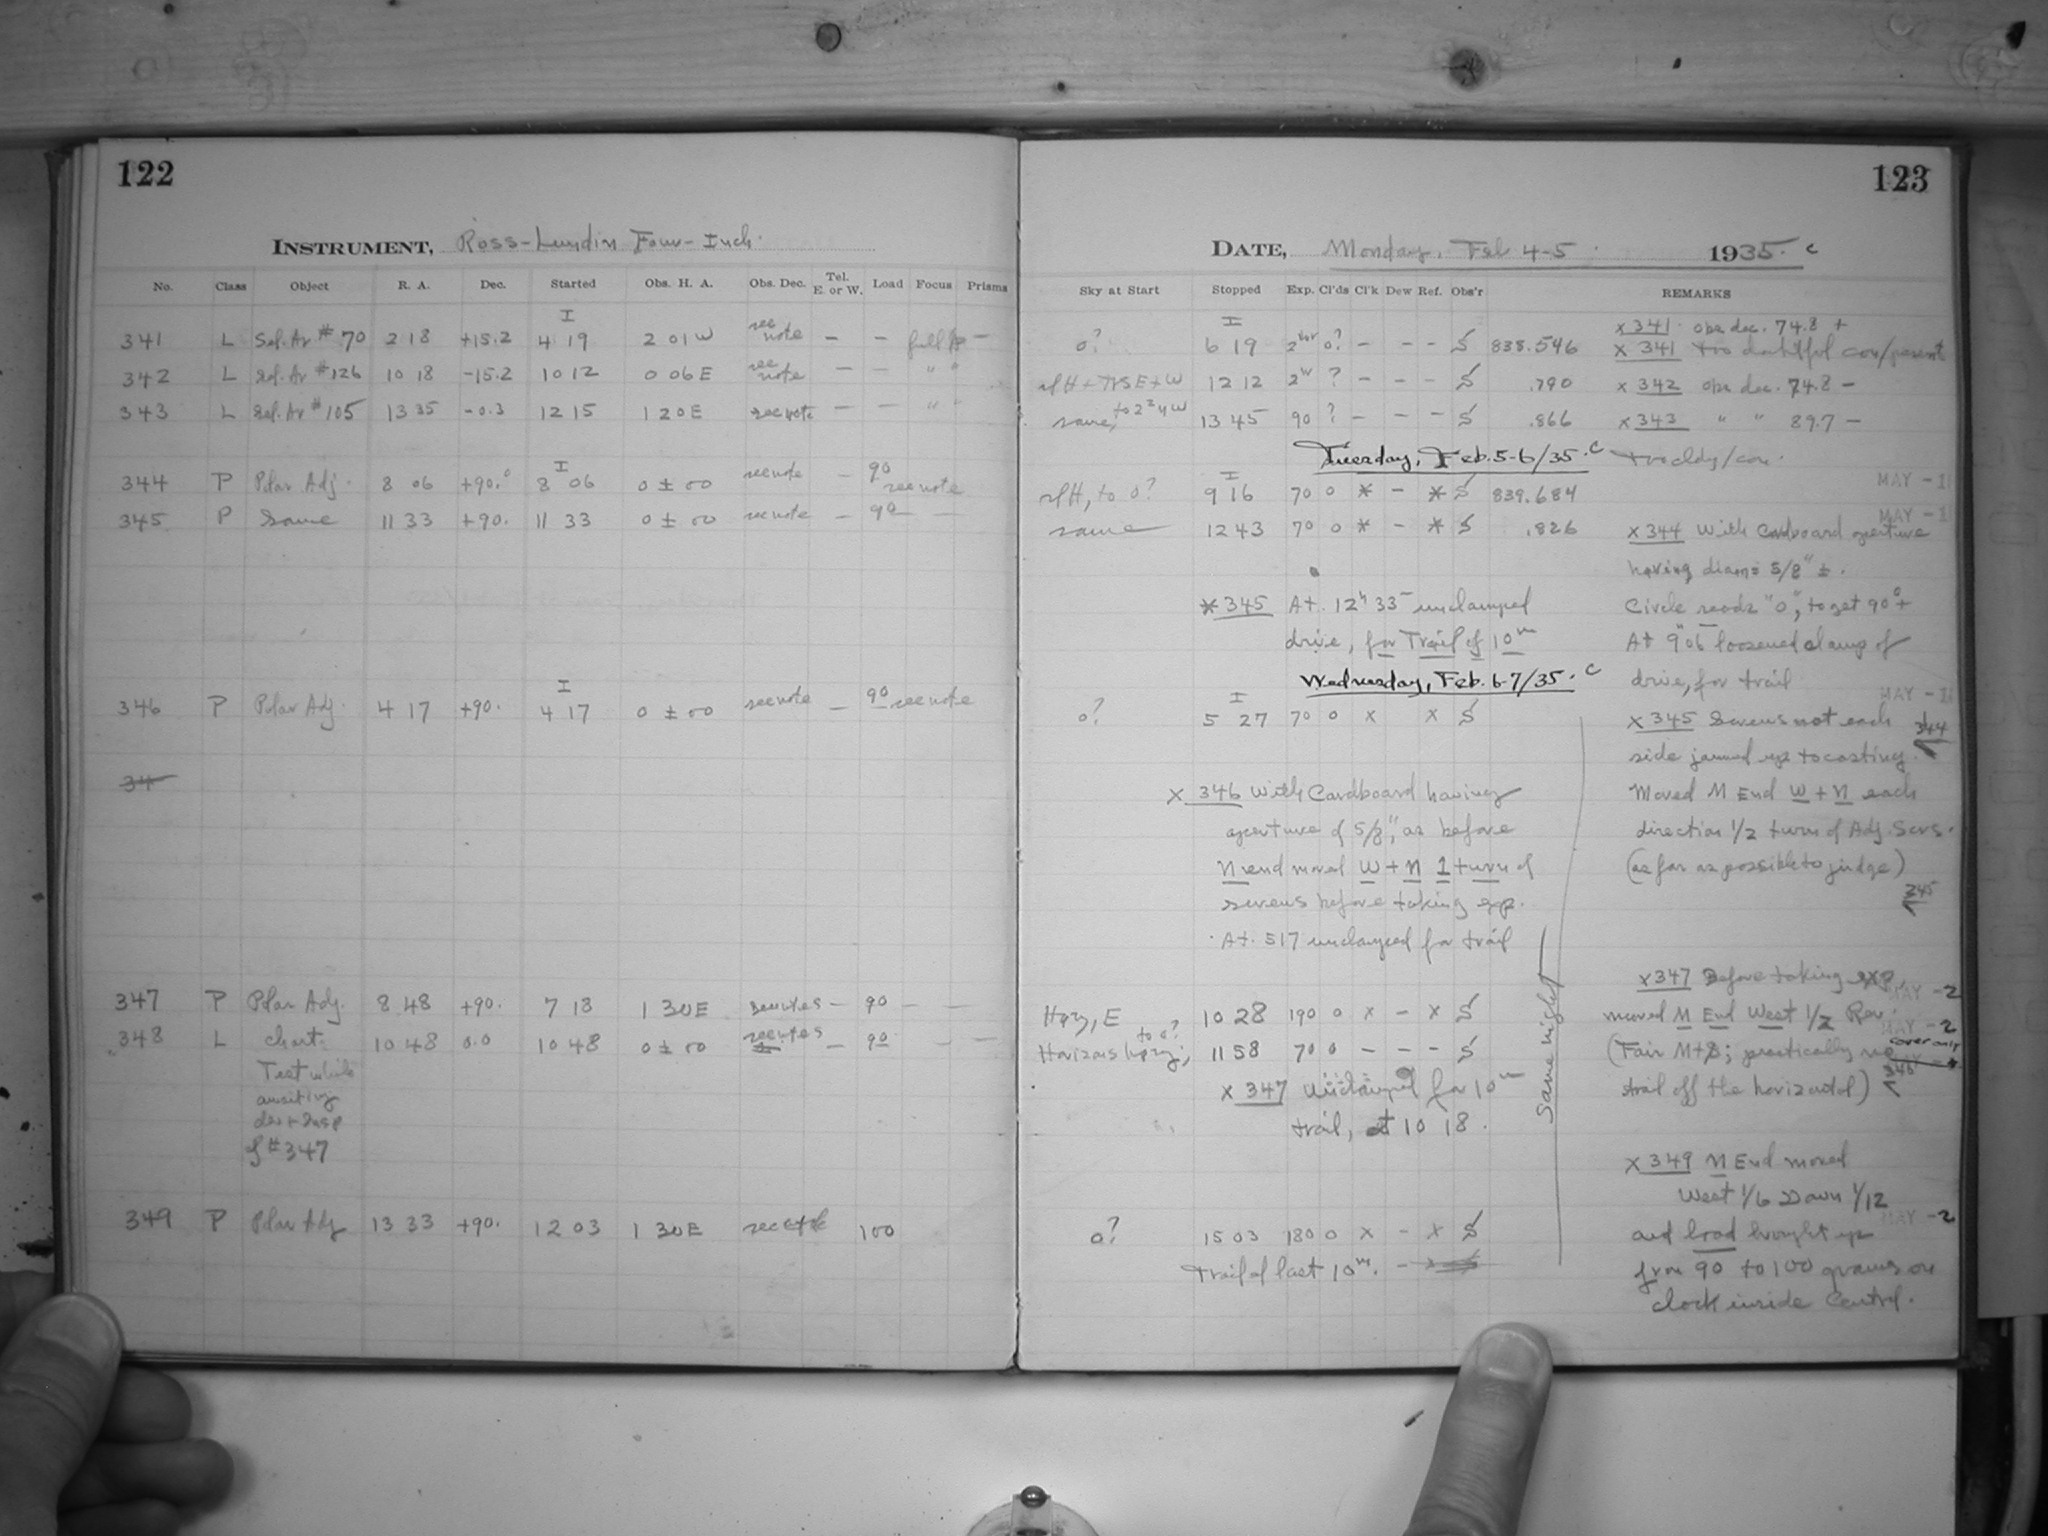 122
INSTRUMENT, Ross-Lundin Four-Inch.
No. Class Object R. A. Dec. Started Obs. H. A. Obs. Dec. Tel. E. or W. Load Focus Prisms
341 L Sel. Ar #70 2 18 +15.2 I 4 19 2 01 W see note — — full Ap —
342 L Sel. Ar #126 10 18 -15.2 10 12 0 06 E see note — — " "
343 L Sel. Ar #105 13 35 -0.3 12 15 1 20 E see note — — " "
344 P Polar Adj. 8 06 +90.° I 8 06 0 ± 00 see note — 90 see note
345 P Same 11 33 +90. 11 33 0 ± 00 see note — 90 —
346 P Polar Adj. 4 17 +90. I 4 17 0 ± 00 see note — 90 see note
34
347 P Polar Adj. 8 48 +90. 7 18 1 30 E see notes — 90 — —
348 L Chart: 10 48 0.0 10 48 0 ± 00 see notes — 90 — —
Test while
awaiting
of #347
349 P Polar Adj 13 33 +90. 12 03 1 30 E see note 100
123
DATE, Monday, Feb 4-5 1935. c
Sky at Start Stopped Exp. Cl'ds Cl'k Dew Ref. Obs'r REMARKS
x 341 obs dec. 74.8 +
o? I 6 19 o? — — — S 838.546 x 341 too doubtful
12 12 ? — — — S .790 x 342 obs dec. 74.8 —
same, 13 45 90 ? — — — S .866 x 343 " " 89.7 —
Tuesday, Feb. 5-6/35. c
MAY -1
to o? I 9 16 70 0 * — * S 839.684
MAY -1
same 12 43 70 0 * — * S .826 x 344 With Cardboard aperture
having diam = 5/8" ±.
* 345 At 12h 33 unclamped Circle reads "0", to get 90° +
drive, for Trail of 10m At 9h 06 loosened clamp of
Wednesday, Feb. 6-7/35. c drive, for trail
MAY -1
o? I 5 27 70 0 x x S x 345 Screws not each 344
side jammed up to casting.
x 346 With Cardboard having Moved N End W + N each
aperture of 5/8", as before direction 1/2 turn of Adj. Scrs.
N end moved W + N 1 turn of (as far as possible to judge)
screws before taking exp. 345
At 517 unclamped for trail
x 347 Before taking exp.
MAY -2
Hazy, E 10 28 190 0 x — x S moved N End West 1/2 Rev.
MAY -2
cover only
Horizons hazy; to o? 11 58 70 0 — — — S (Fair N+S; practically no
346
x 347 Unclamped for 10m trail off the horizontal)
trail, at 10 18.
Same night
x 349 N End moved
West 1/6 Down 1/12
MAY -2
o? 15 03 180 0 x — x S and load brought up
Trail of last 10m. — from 90 to 100 grams on
clock inside Control.